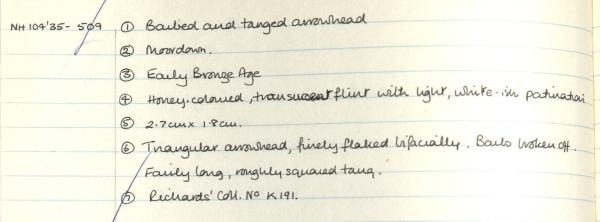 NH 104'35 - 509 ① Barbed and tanged arrowhead
② Moordown.
③ Early Bronze Age
④ Honey-coloured, transucent flint with light, white-ish patination
⑤ 2.7cm x 1.8cm.
⑥ Triangular arrowhead, finely flaked bifacially. Barbs broken off.
Fairly long, roughly squared tang.
⑦ Richards' Coll. No K191.